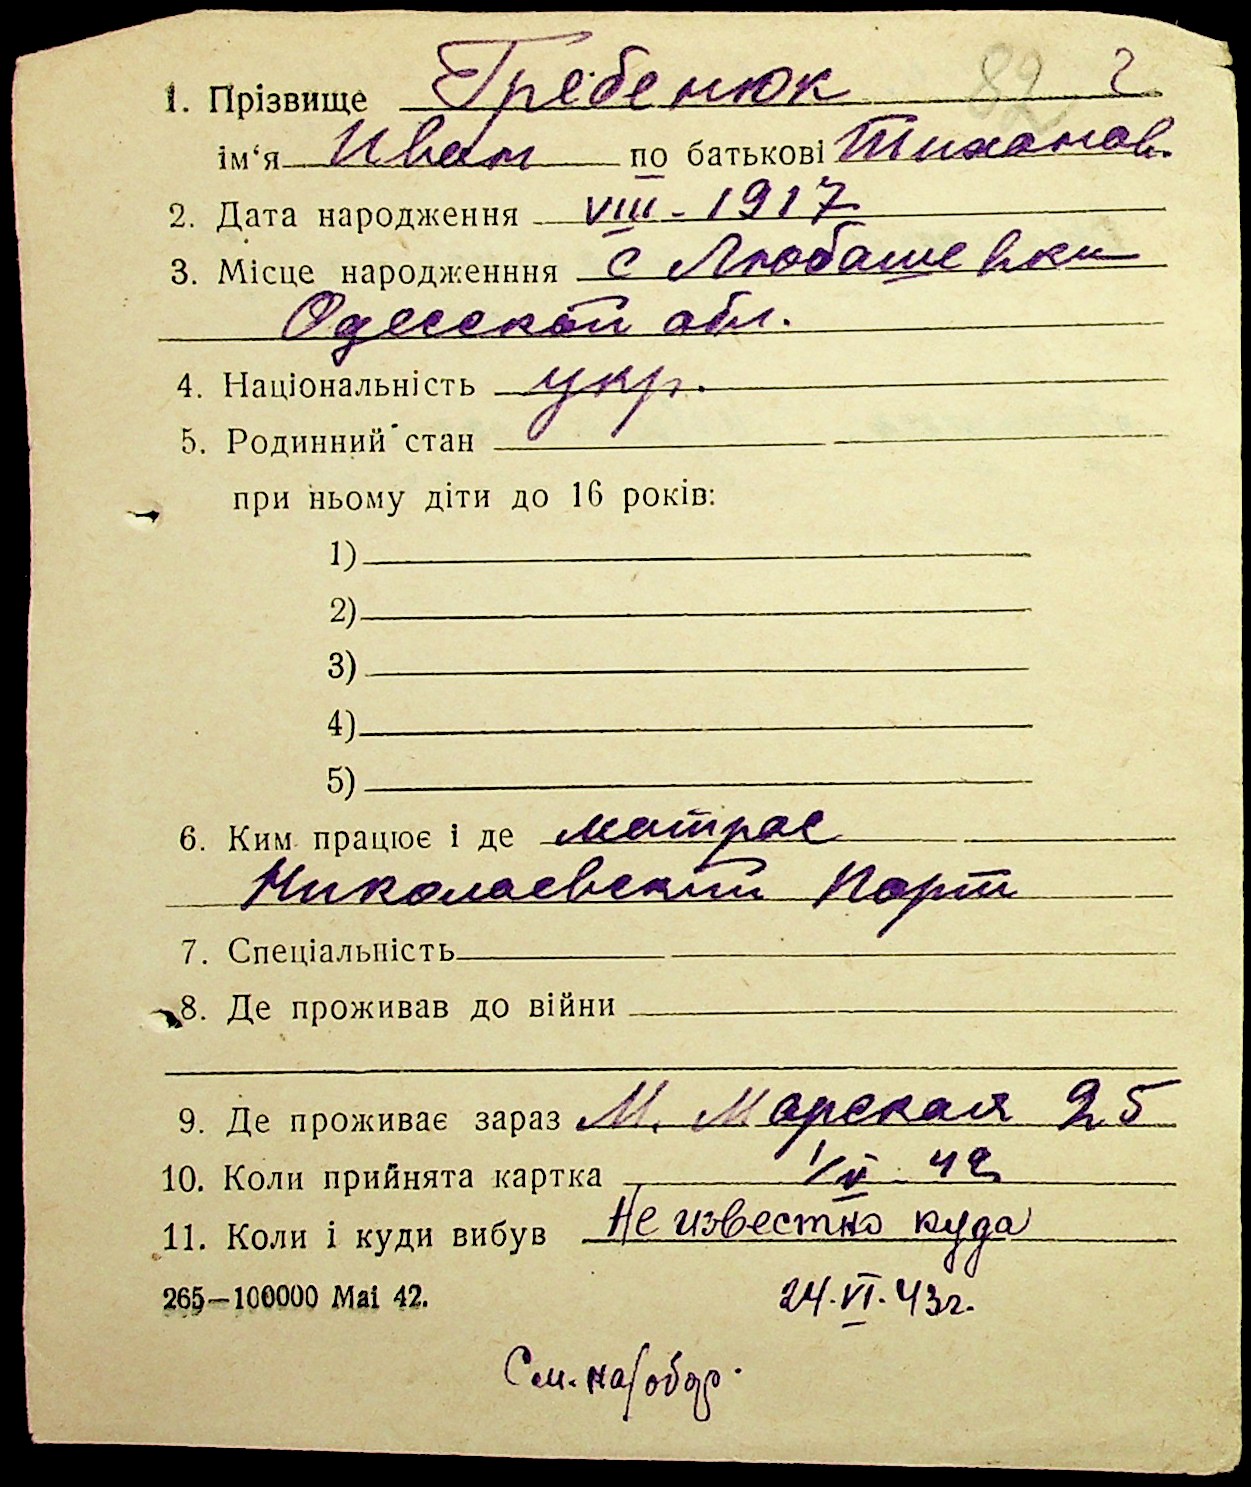 1. Прізвище Гребенюк 82 2
ім‘я Иван по батькові Тихонов.
2. Дата народження VIII - 1917
3. Місце народженння с Любашевки
Одесской обл.
4. Національність укр.
5. Родинний стан
при ньому діти до 16 років:
1)
2)
3)
4)
5)
6. Ким працює і де матрос
Николаевский Порт
7. Спеціальність
8. Де проживав до війни
9. Де проживає зараз М. Морская 25
10. Коли прийнята картка 1/V 42
11. Коли і куди вибув Не известно куда
265—100000 Mai 42. 24.VI.43г.
См. на/обор.